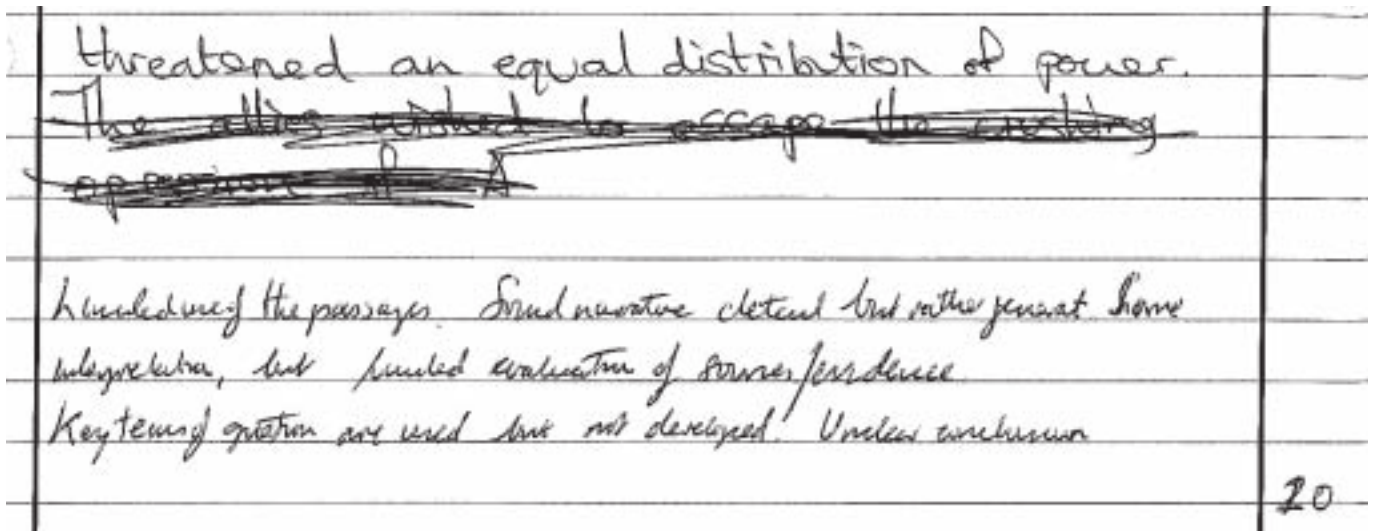 threatened an equal distribution of power.
The allies wished to escape the crushing
of A
Limited use of the passages. Sound narrative detail but rather general. Some
interpretation, but limited evaluation of sources/evidence
Key terms of question are used but not developed. Unclear conclusion
20